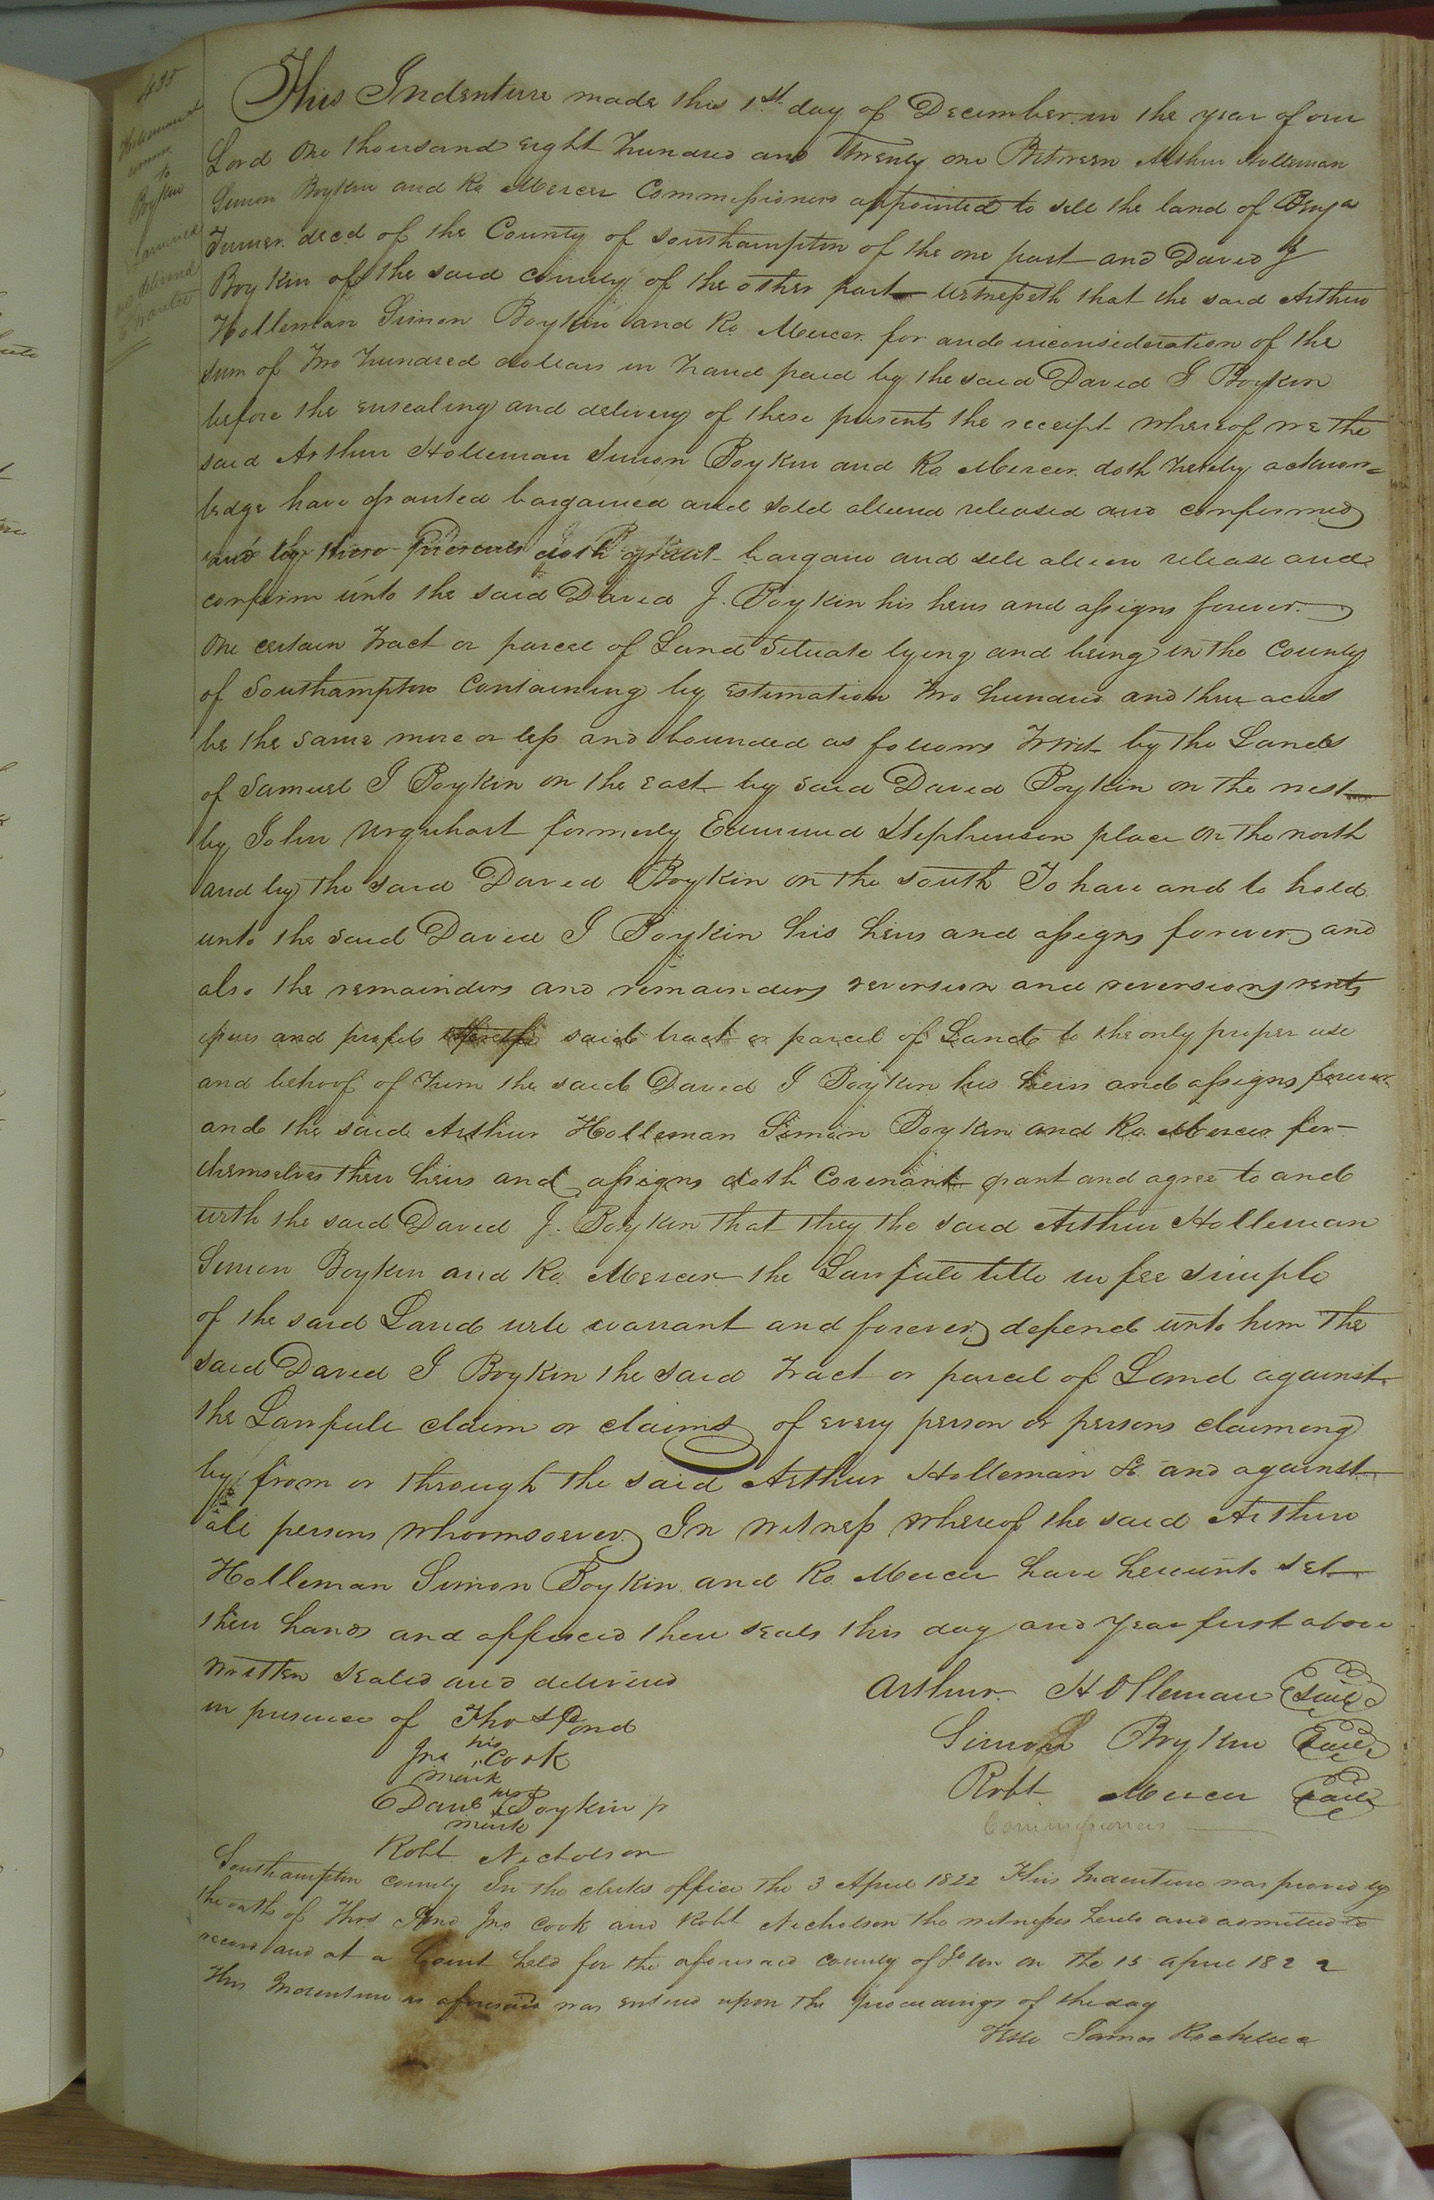 435
Holleman &
comm
to
Boykin
Examined
and delivered
Grantee
This Indenture made this 1st day of December in the year of our
Lord One thousand eight hundred and Twenty one Between Arthur Holleman
Simon Boykin and Ro Mercer Commissioners appointed to sell the land of Benja
Turner decd of the County of Southampton of the one part and David J
Boykin of the said county of the other part witnesseth that the said Arthur
Holleman Simon Boykin and Ro. Mercer for and inconsideration of the
sum of Two hundred dollars in hand paid by the said David J Boykin
before the ensealing and delivery of these presents the receipt whereof we the
said Arthur Holleman Simon Boykin and Ro Mercer doth hereby acknow=
ledge have granted bargained and sold aliened released and confirmed
and by these Presents doth grant bargain and sell alien release and
confirm unto the said David J. Boykin his heirs and assigns forever.
One certain tract or parcel of Land Situate lying and being in the County
of Southampton Containing by estimation two hundred and three acres
be the same more or less and bounded as follows Towit by the Lands
of Samuel J Boykin on the east by said David Boykin on the west
by John Urquhart formerly Edmund Stephenson place on the north
and by the said David Boykin on the south To have and to hold
unto the said David J Boykin his heirs and assigns forever and
also the remainders and remainders reversion and reversions rents
issues and profits said tract or parcel of Land to the only proper use
and behoof of him the said David J Boykin his heirs and assigns forever
and the said Arthur Holleman Simon Boykin and Ro. Mercer for
themselves their heirs and assigns doth Covenant grant and agree to and
with the said David J. Boykin that they the said Arthur Holleman
Simon Boykin and Ro. Mercer the Lawfull title in fee simple
of the said Land will warrant and forever defend unto him the
said David J Boykin the said tract or parcel of Land against
the Lawfull claim or claims of every person or persons claiming
by from or through the said Arthur Holleman &. and against
all persons whoomsoever. In witness whereof the said Arthur
Holleman Simon Boykin and Ro. Mercer have hereunto set
their hands and affixed their seals this day and year first above
written sealed and delivered
in presence of Thos Pond
Arthur Holleman Seal
Jno his Cook
mark
Simon Boykin Seal
Danl his Boykin
mark
Robt Mercer Seal
Commissioners
Robt Nicholson
Southampton county In the clerks office the 3 April 1822 This Indenture was proved by
the oaths of Thos Pond Jno Cook and Robt Nicholson the witnesses hereto and admitted to
record and at a Court held for the aforesaid county of So ton on the 15 april 1822
This Indenture as aforesaid was entered upon the proceedings of the day
Teste James Rochelle